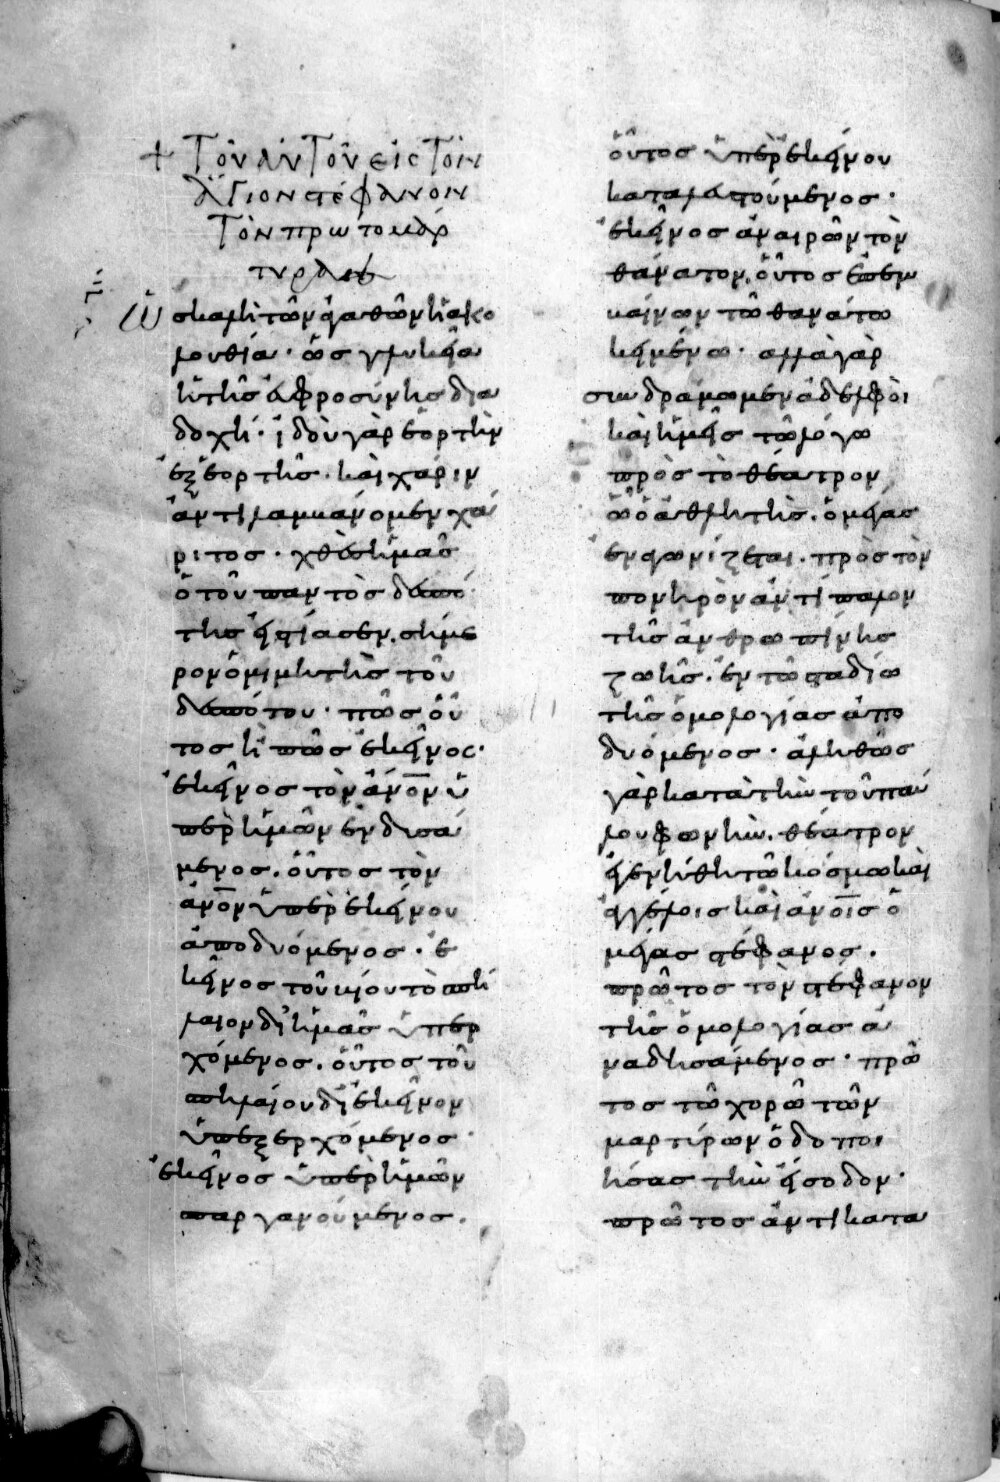 + Τοῦ αὐτοῦ εἰς τὸν
ἅγιον στέφανον
τὸν πρωτομάρ
τυρα
Ὡς καλὴ τῶν ἀγαθῶν ἡ ἀκο
λουθία· ὡς γλυκεῖα
ἡ τῆς εὐφροσύνης δια
δοχή· ἰδοὺ γὰρ ἑορτὴν
ἐξ ἑορτῆς· καὶ χάριν
ἀντιλαμβάνομεν χά
ριτος· χθὲς ἡμᾶς
ὁ τοῦ παντὸς δεσπό
της εἱστίασεν. σήμε
ρον ὁ μιμητὴς τοῦ
δεσπότου· πῶς οὗ
τος ἢ πῶς ἐκεῖνος·
ἐκεῖνος τὸν ἄνον ὑ
πὲρ ἡμῶν ἐνδυσά
μενος. οὗτος τὸν
ἄνον ὑπὲρ ἐκείνου
ἀποδυόμενος. ἐ
κεῖνος τοῦ βίου τὸ σπή
λαιον δι ἡμᾶς ὑπερ
χόμενος. οὗτος τοῦ
σπηλαίου δι ἐκεῖνον
ὑπεξερχόμενος·
ἐκεῖνος ὑπὲρ ἡμῶν
σπαργανούμενος.
οὗτος ὑπὲρ ἐκείνου
καταλιθούμενος·
ἐκεῖνος ἀναιρῶν τὸν
θάνατον. οὗτος ἐπεμ
βαίνων τῶ θανάτω
κειμένω· ἀλλὰ γὰρ
συνδράμωμεν ἀδελφοὶ
καὶ ἡμεῖς τῶ λόγω
πρὸς τὸ θέατρον
ὧ ὁ ἀθλητὴς. ὁ μέγας
ἐναγωνίζεται. πρὸς τὸν
πονηρὸν ἀντίπαλον
τῆς ἀνθρωπίνης
ζωῆς. ἐν τῶ σταδίω
τῆς ὁμολογίας ἀπο
δυόμενος· ἀληθῶς
γὰρ κατὰ τὴν τοῦ παύ
λου φωνὴν. θέατρον
ἐγενήθη τῶ κόσμω καὶ
ἀγγέλοις καὶ ἀνοις ὁ
μέγας στέφανος.
πρῶτος τὸν στέφανον
τῆς ὁμολογίας ἀ
ναδησάμενος· πρῶ
τος τῶ χορῶ τῶν
μαρτύρων ὁδοποι
ήσας τὴν εἴσοδον·
πρῶτος ἀντικατα